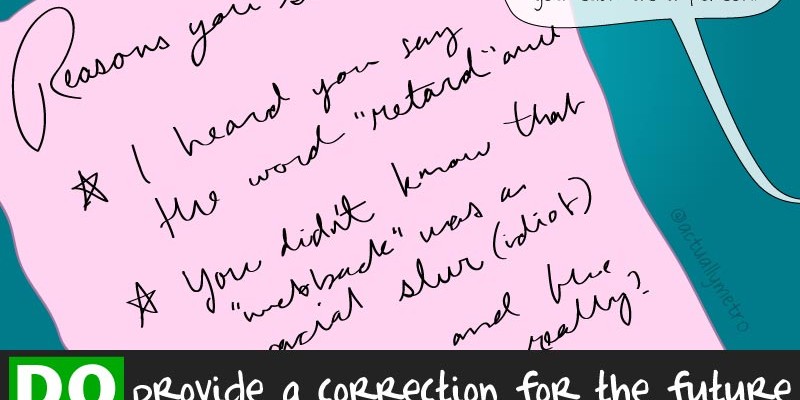 Reasons you
I heard you say
the word "retard" and
You didn't know that
"wetback" was a
racial slur (idiot)
and
really?
@actuallymetro
DO provide a correction for the future